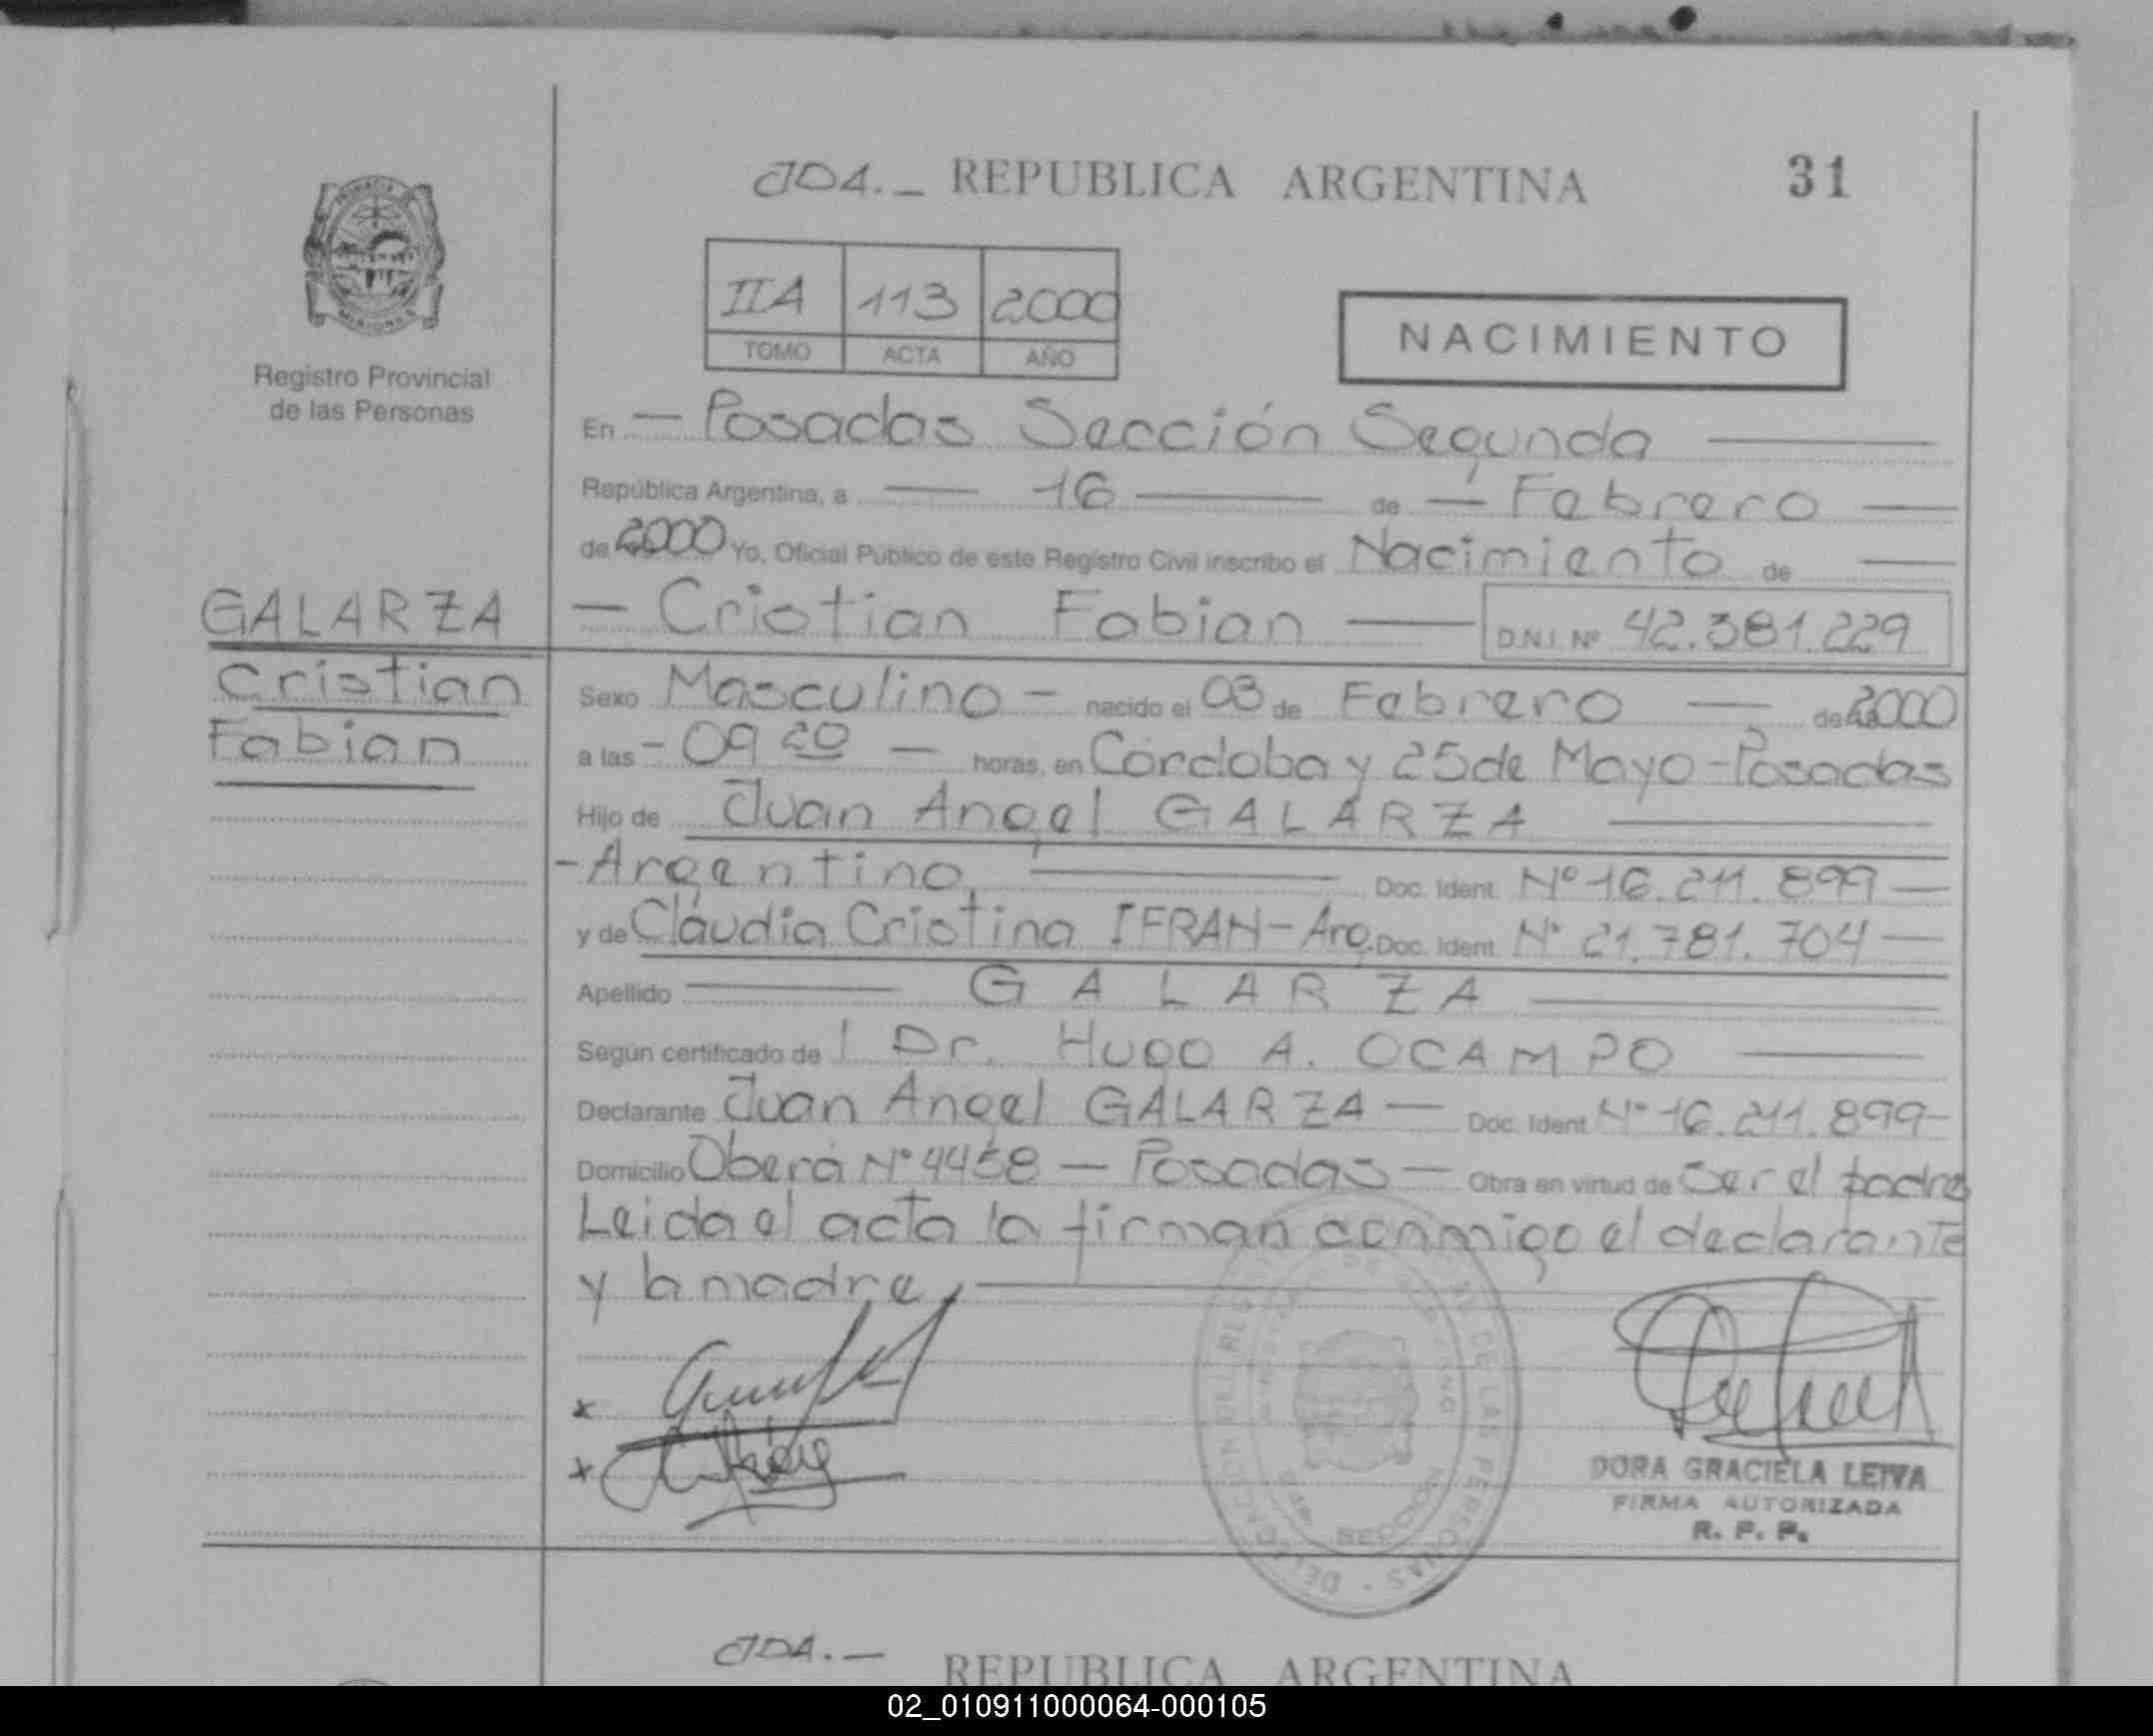 JDA.- REPUBLICA ARGENTINA 31
IIA 113 2000
TOMO ACTA AÑO
NACIMIENTO
Registro Provincial
de las Personas
En - Posadas Sección Segunda
República Argentina, a - 16 - de - Febrero -
de 2000 Yo, Oficial Público de este Registro Civil inscribo el Nacimiento de -
GALARZA
- Cristian Fabian - D.N.I. Nº 42.381.229
Cristian
Fabian
Sexo Masculino - nacido el 03 de Febrero - de 2000
a las - 09 20 - horas, en Córdoba y 25 de Mayo - Posadas
Hijo de Juan Angel GALARZA
- Argentino, Doc. Ident. Nº 16.211.899 -
y de Claudia Cristina IFRAN - Arg. Doc. Ident. Nº 21.781.704 -
Apellido GALARZA
Según certificado de l Dr. Hugo A. OCAMPO
Declarante Juan Angel GALARZA - Doc. Ident. Nº 16.211.899 -
Domicilio Oberá Nº 4458 - Posadas - Obra en virtud de Ser el padre
Leida el acta la firman conmigo el declarante
y la madre,
x
x
DELEGACION DEL REGISTRO DE LAS PERSONAS
SECCION
DORA GRACIELA LEIVA
FIRMA AUTORIZADA
R. P. P.
JDA.- REPUBLICA ARGENTINA
02_010911000064-000105